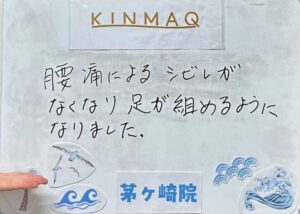 KINMAQ
腰痛による シビレが
なくなり 足が組めるように
なりました.
茅ヶ崎院